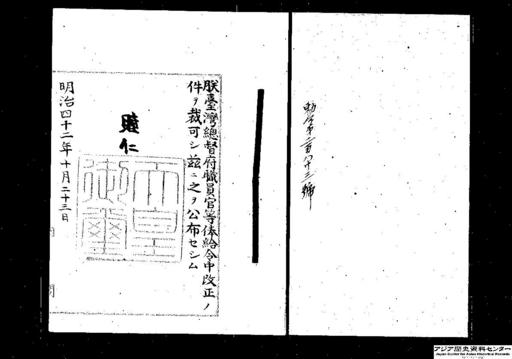 勅令第二百八十三號
朕臺灣總督府職員官等俸給令中改正ノ
件ヲ裁可シ茲ニ之ヲ公布セシム
睦仁
天皇
御璽
明治四十二年十月二十三日
内閣
アジア歴史資料センター
Japan Center for Asian Historical Records